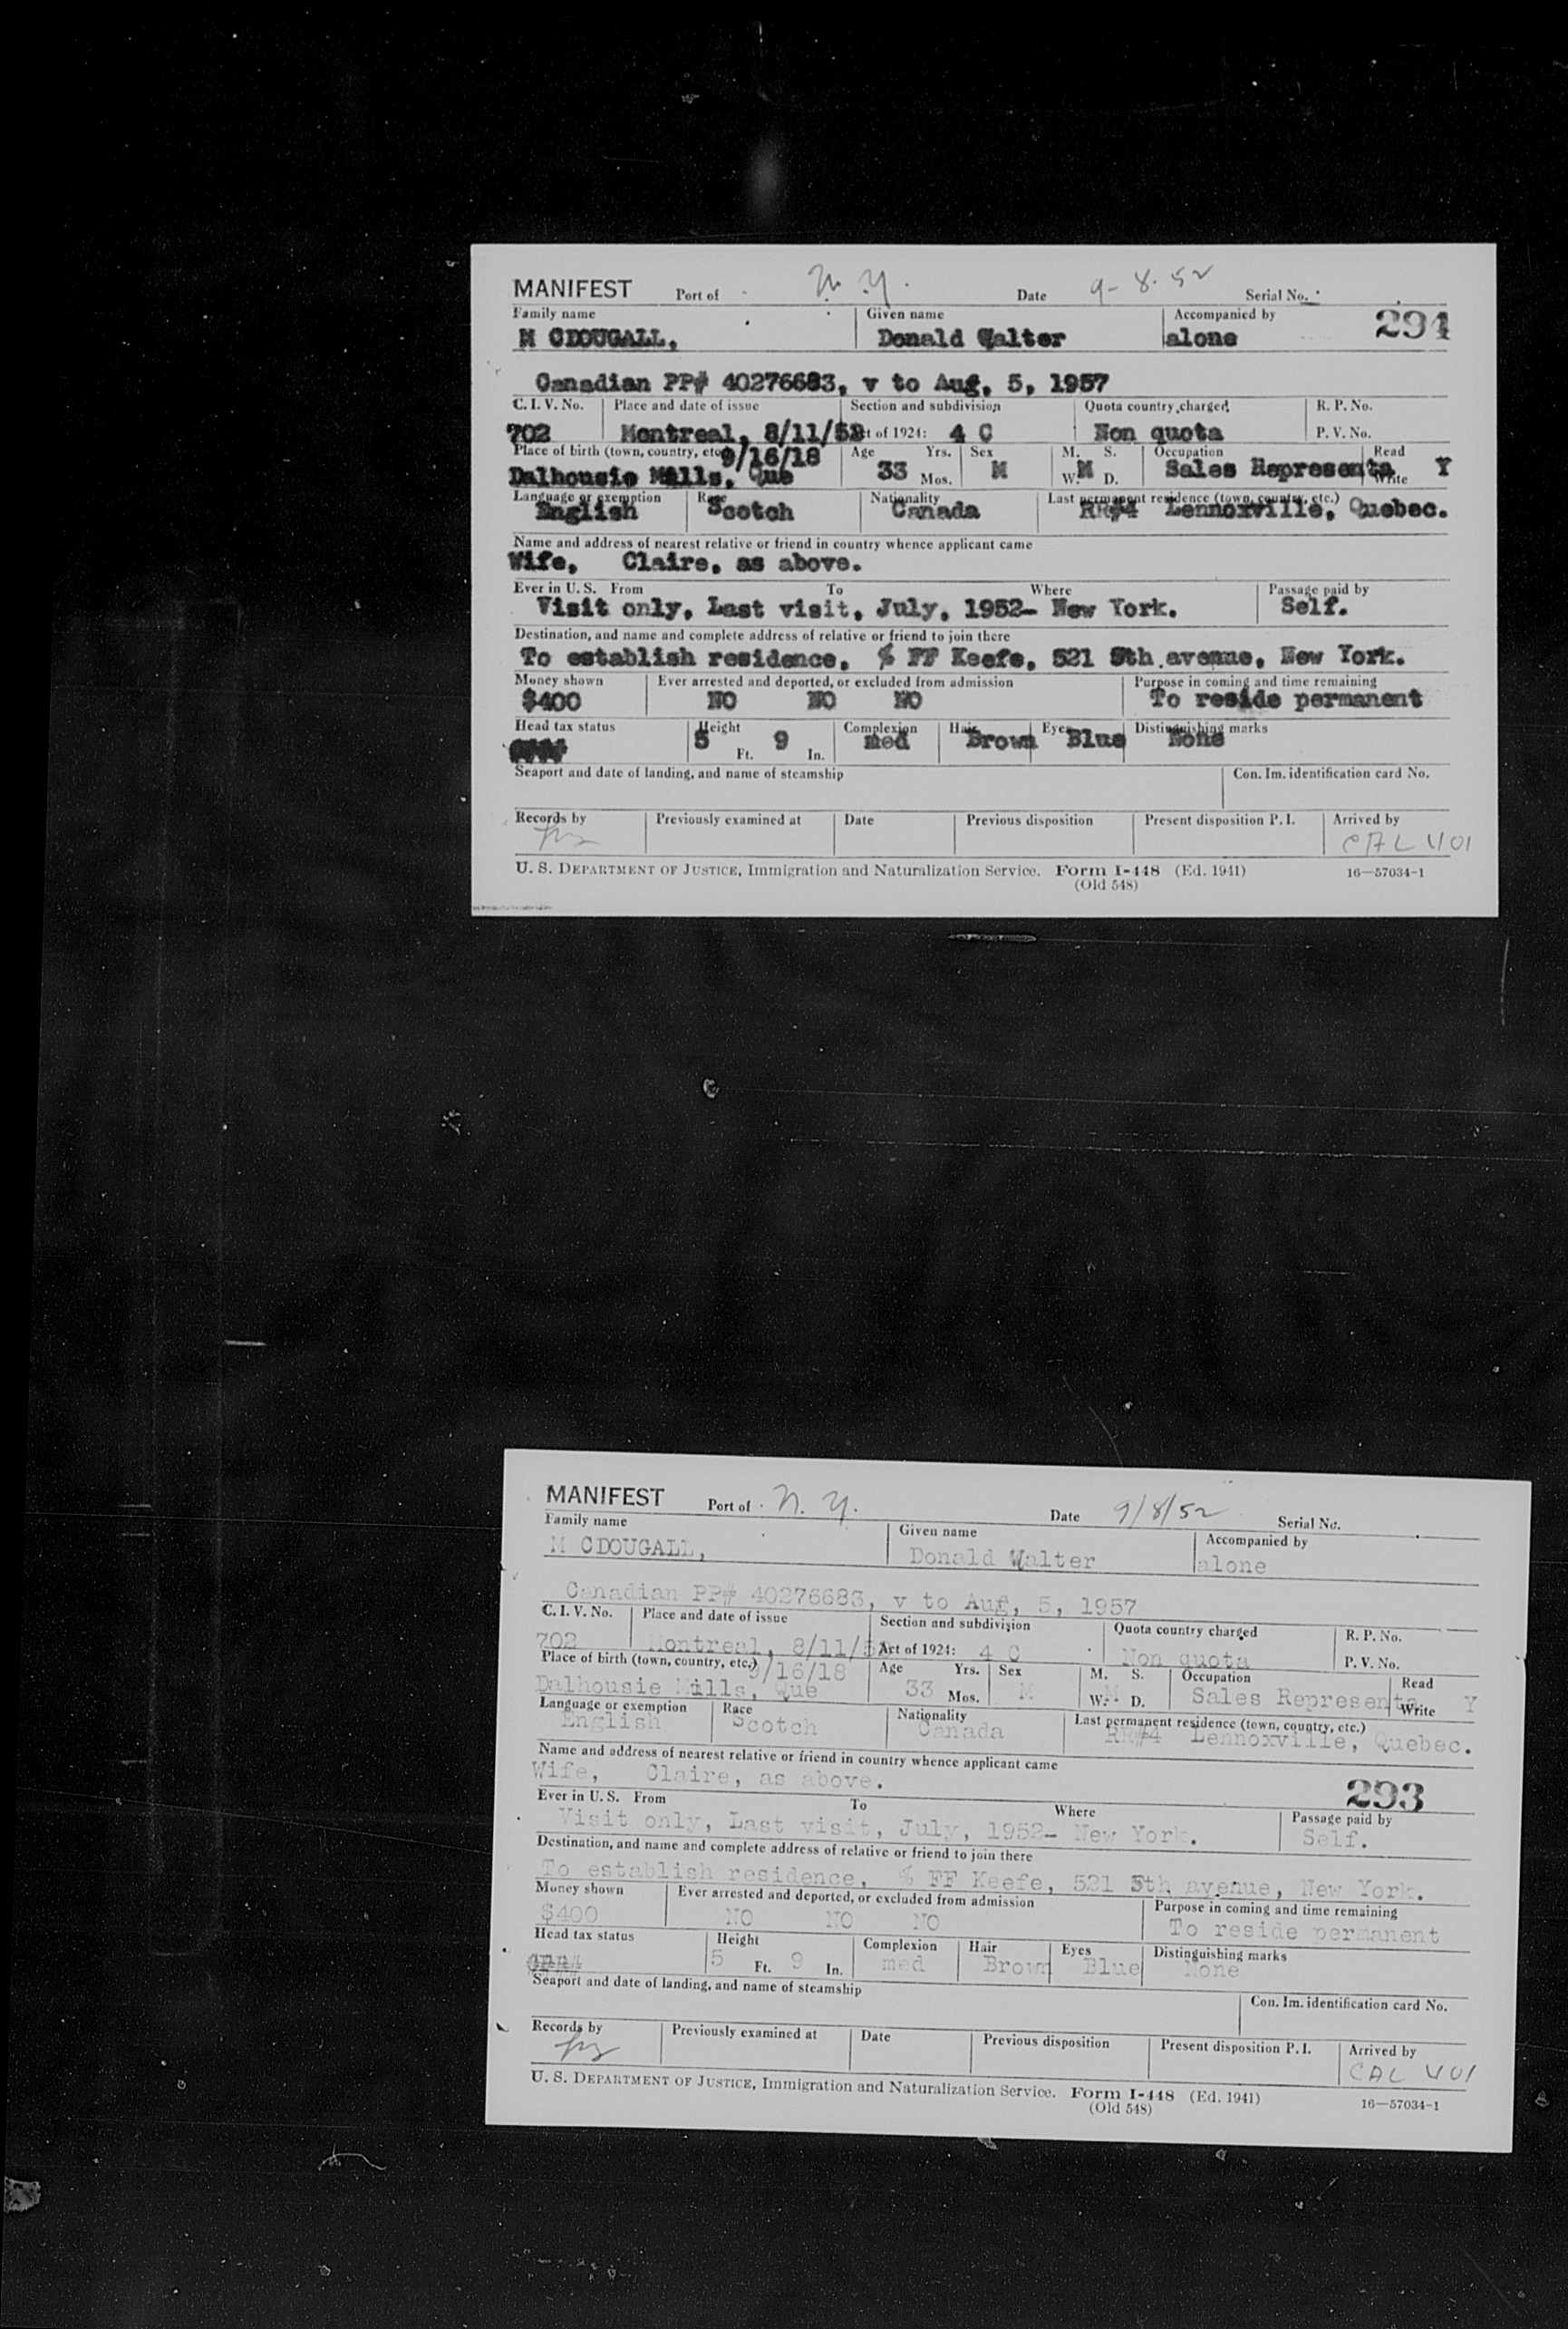 MANIFEST Port of N. Y. Date 9-8-52 Serial No.
Family name Given name Accompanied by 294
M CDOUGALL, Donald Walter alone
Canadian PP# 40276683, v to Aug, 5, 1957
C. I. V. No. Place and date of issue Section and subdivision Quota country charged R. P. No.
702 Montreal, 8/11/52 Act of 1924: 4 C Non quota P. V. No.
Place of birth (town, country, etc.) 9/16/18 Age Yrs. Sex M. S. Occupation Read
Dalhousie Mills, Que 33 Mos. M W. M D. Sales Representa Write Y
Language or exemption Race Nationality Last permanent residence (town, country, etc.)
English Scotch Canada RR#4 Lennoxville, Quebec.
Name and address of nearest relative or friend in country whence applicant came
Wife, Claire, as above.
Ever in U. S. From To Where Passage paid by
Visit only, Last visit, July, 1952- New York. Self.
Destination, and name and complete address of relative or friend to join there
To establish residence, % FF Keefe, 521 5th avenue, New York.
Money shown Ever arrested and deported, or excluded from admission Purpose in coming and time remaining
$400 NO NO NO To reside permanent
Head tax status Height Complexion Hair Eyes Distinguishing marks
5 Ft. 9 In. med Brown Blue None
Seaport and date of landing, and name of steamship Con. Im. identification card No.
Records by Previously examined at Date Previous disposition Present disposition P. I. Arrived by
CAL 401
U. S. DEPARTMENT OF JUSTICE, Immigration and Naturalization Service. Form I-448 (Ed. 1941) 16—57034-1
(Old 548)
MANIFEST Port of N. Y. Date 9/8/52 Serial No.
Family name Given name Accompanied by
M CDOUGALL, Donald Walter alone
Canadian PP# 40276683, v to Aug, 5, 1957
C. I. V. No. Place and date of issue Section and subdivision Quota country charged R. P. No.
702 Montreal, 8/11/52 Act of 1924: 4 C Non quota P. V. No.
Place of birth (town, country, etc.) 9/16/18 Age Yrs. Sex M. S. Occupation Read
Dalhousie Mills, Que 33 Mos. M W. D. Sales Representa Write Y
Language or exemption Race Nationality Last permanent residence (town, country, etc.)
English Scotch Canada RR#4 Lennoxville, Quebec.
Name and address of nearest relative or friend in country whence applicant came
Wife, Claire, as above. 293
Ever in U. S. From To Where Passage paid by
Visit only, Last visit, July, 1952- New York. Self.
Destination, and name and complete address of relative or friend to join there
To establish residence, % FF Keefe, 521 5th avenue, New York.
Money shown Ever arrested and deported, or excluded from admission Purpose in coming and time remaining
$400 NO NO NO To reside permanent
Head tax status Height Complexion Hair Eyes Distinguishing marks
5 Ft. 9 In. med Brown Blue None
Seaport and date of landing, and name of steamship Con. Im. identification card No.
Records by Previously examined at Date Previous disposition Present disposition P. I. Arrived by
CAL 401
U. S. DEPARTMENT OF JUSTICE, Immigration and Naturalization Service. Form I-448 (Ed. 1941) 16—57034-1
(Old 548)